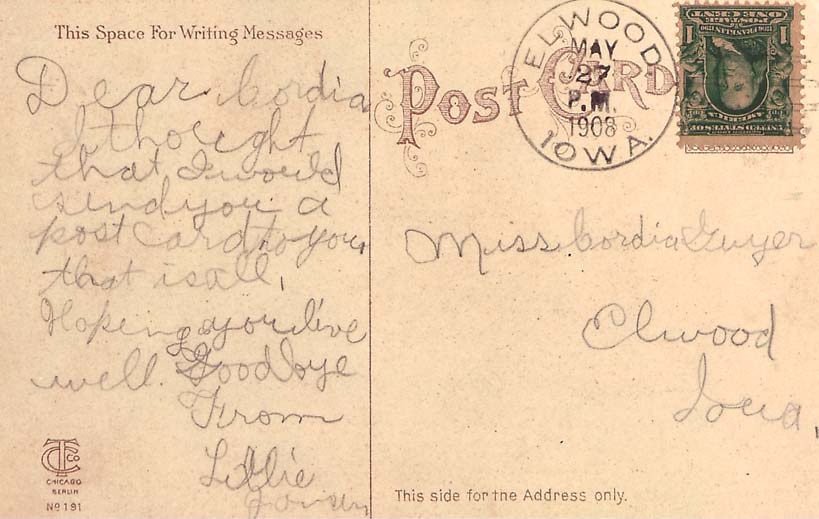 This Space For Writing Messages
Dear Cordia
I thought
that I would
send you a
post card to you,
that is all,
Hopeing you live
well. Goodbye
From
Lillie
CTCo
CHICAGO
BERLIN
No 191
POST CARD
ELWOOD
MAY
27
P.M.
1908
IOWA.
1 1
ONE CENT
POSTAGE
SERIES 1902
AMERICA
UNITED STATES OF
Miss Cordia Guyer
Elwood
Iowa,
This side for the Address only.